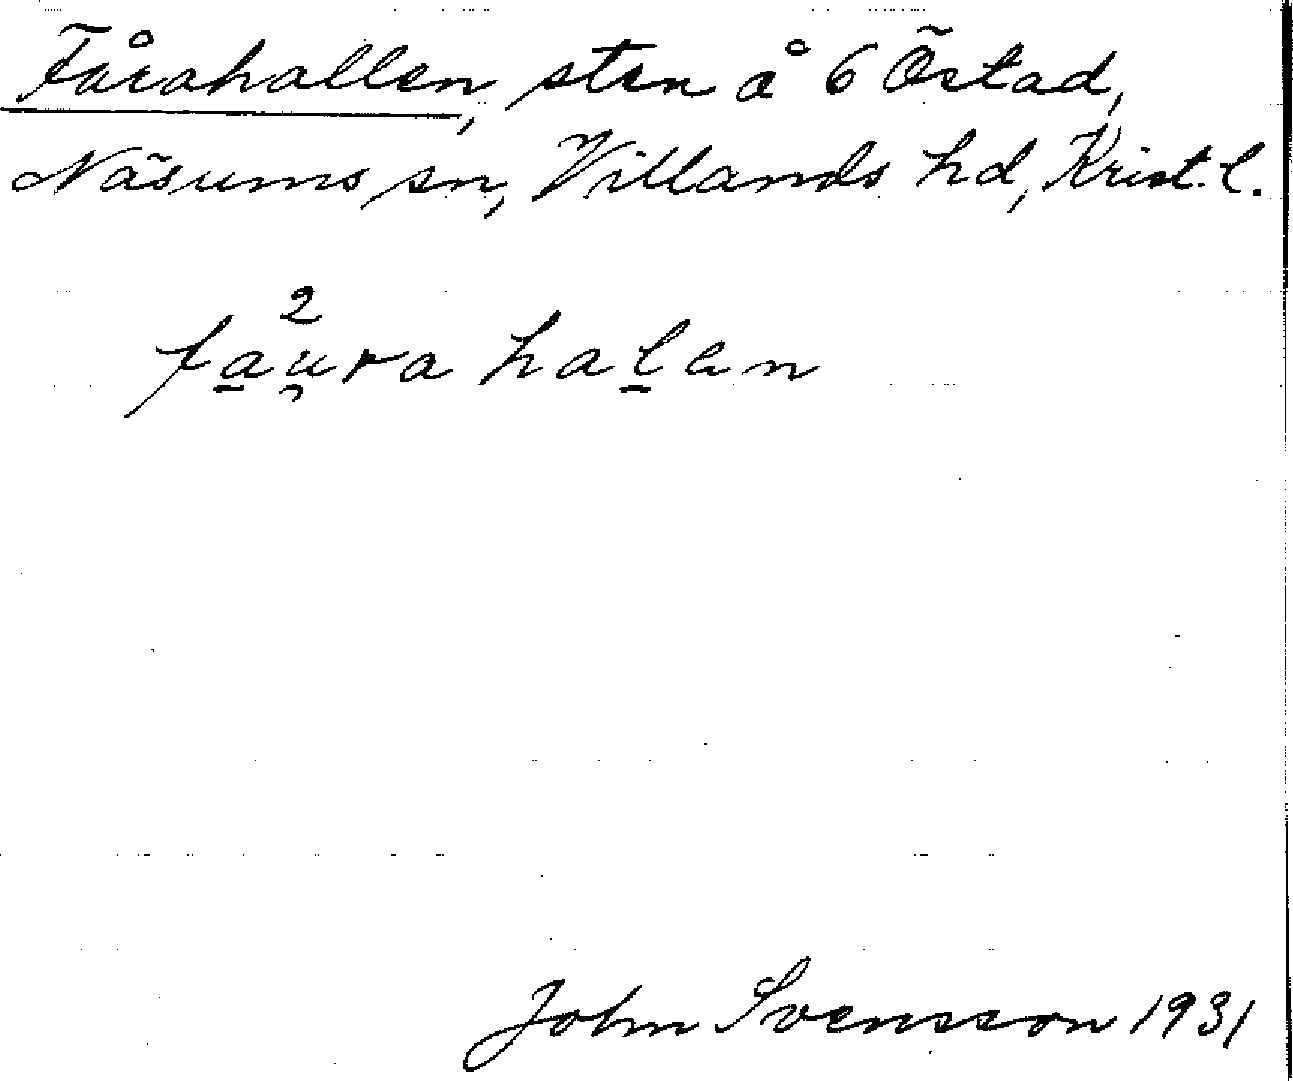 Fårahallen, sten å 6 Östad,
Näsums sn, Villands hd, Krist. l.
2
fa̠u̯ra hal̠en
John Svensson 1931